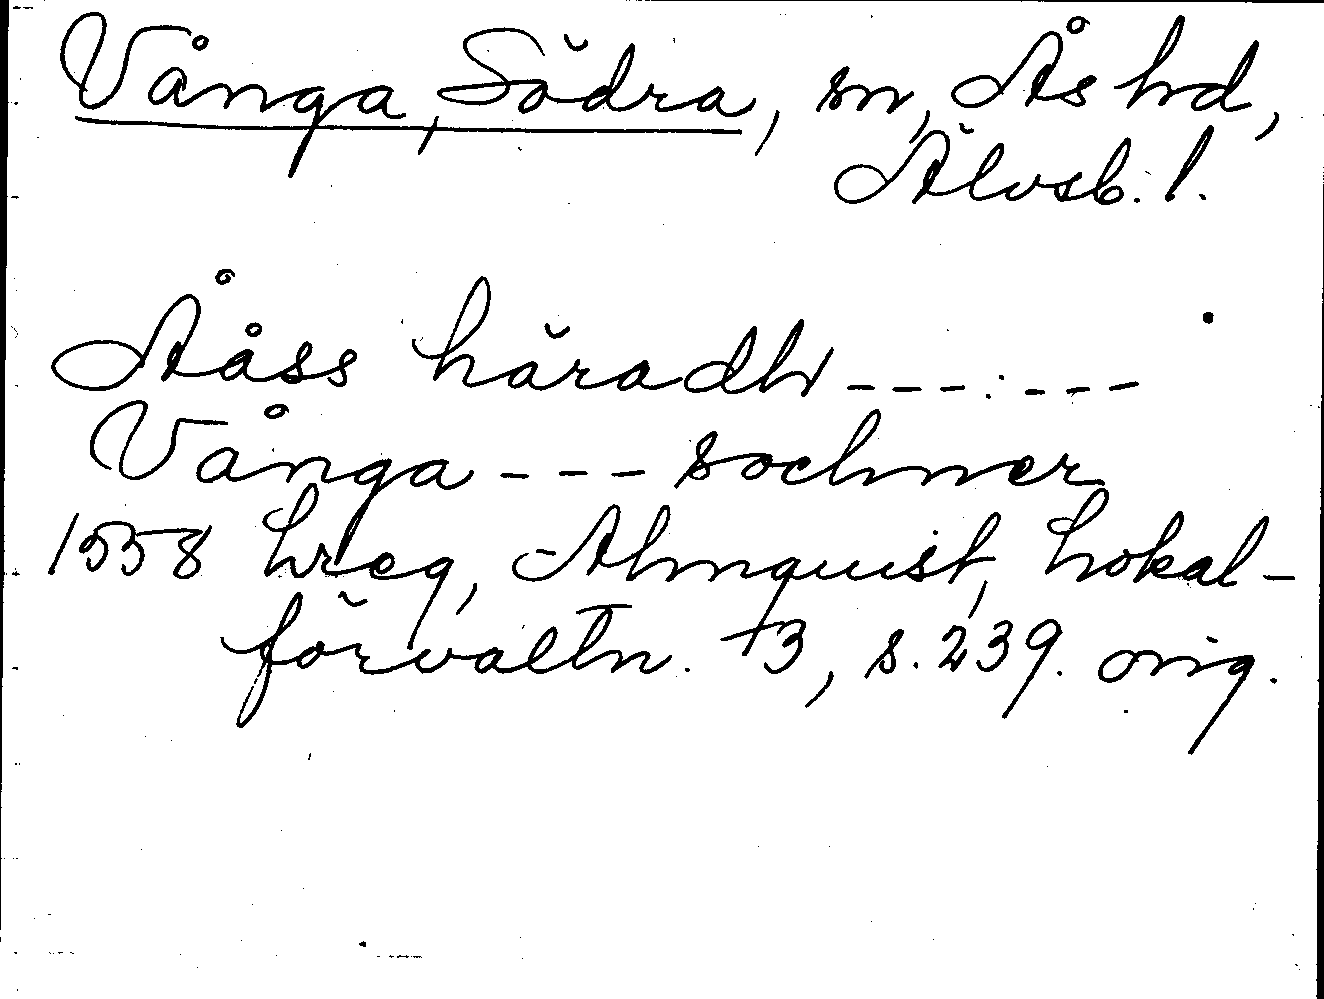 Vånga, Södra, sn, Ås hd,
Älvsb. l.
Ååss häradh --- : ---
Vånga --- sochner
1558 hreg, Almquist, Lokal-
förvaltn. +3, s. 239. orig.